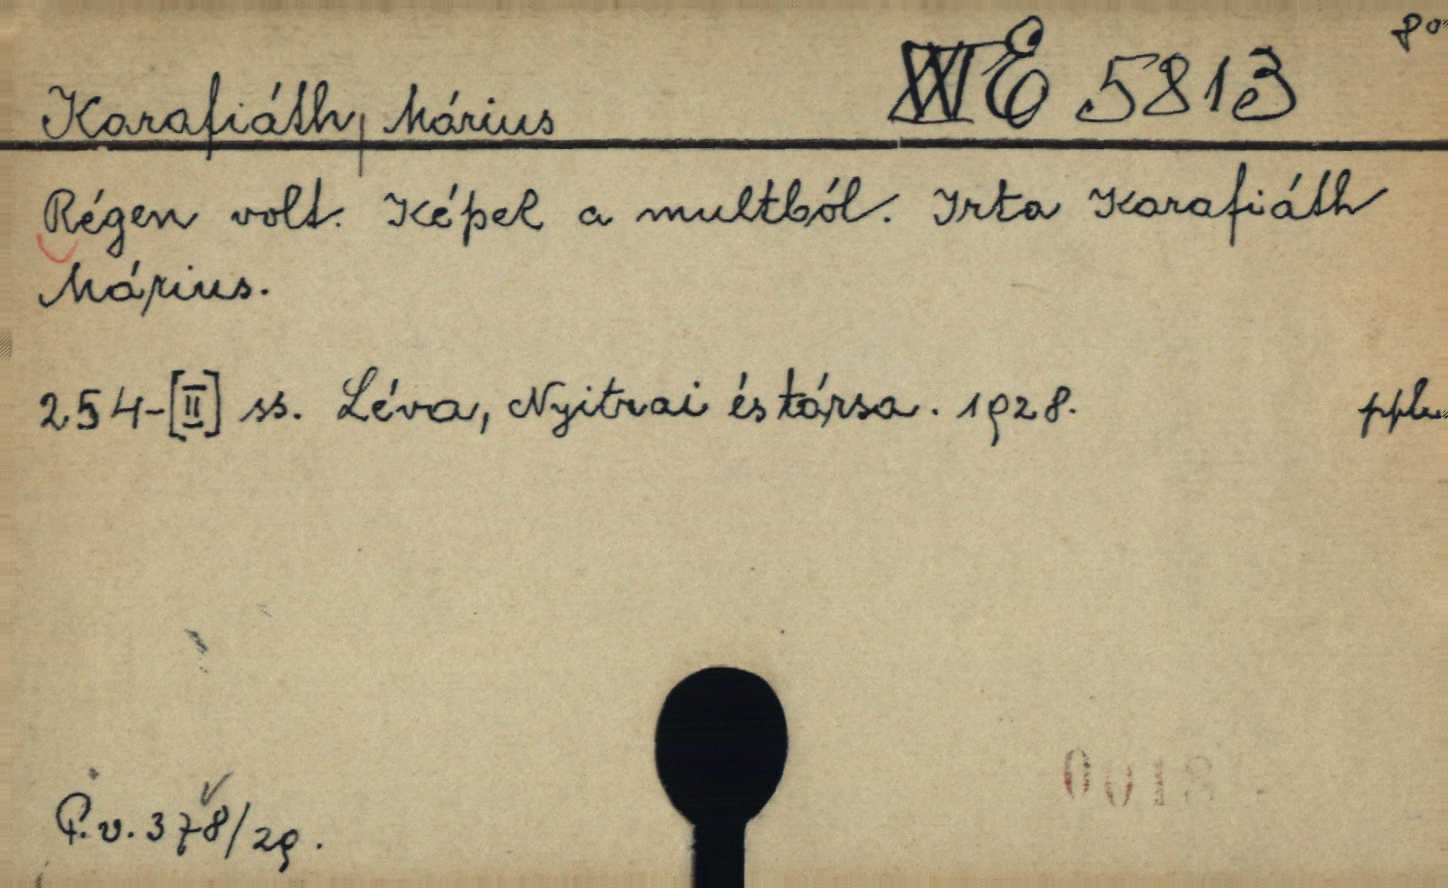 8°
Karafiáth, Márius
E 5813
Régen volt. Képek a multból. Irta Karafiáth
Márius.
254-[II] ss. Léva, Nyitrai és társa. 1928.
P.v. 378/29.
0018